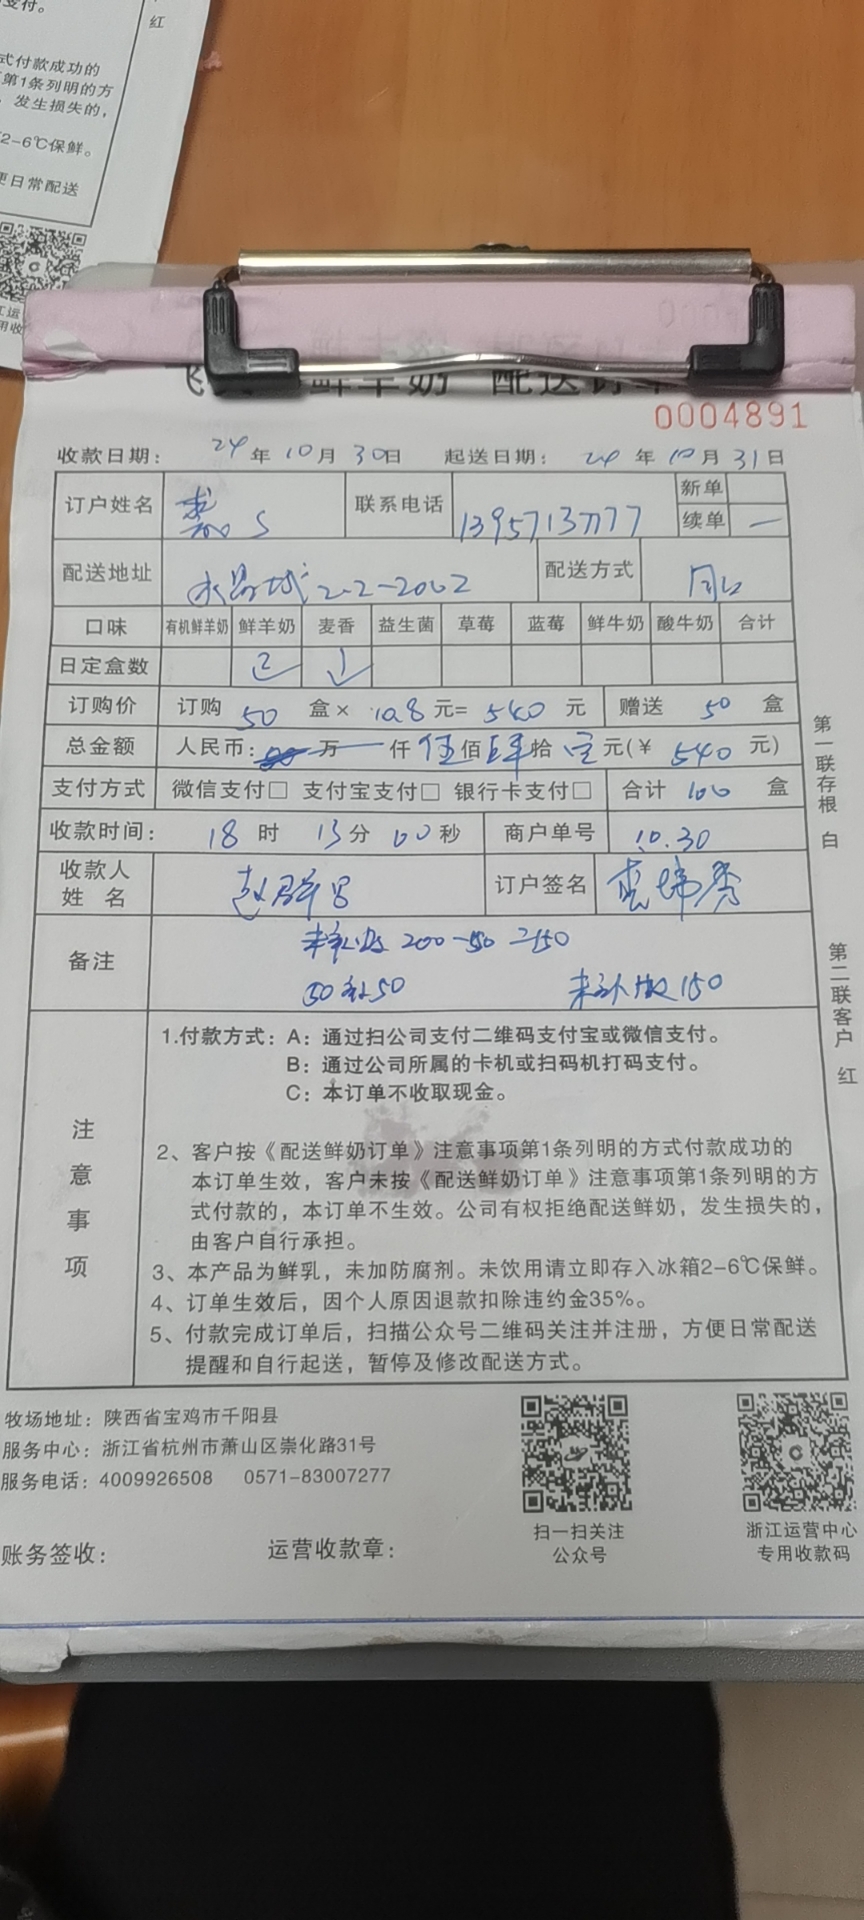 支付。
红
式付款成功的
第1条列明的方
发生损失的，
2-6℃保鲜。
便日常配送
鲜羊奶 配送订单
0004891
收款日期： 24年10月30日 起送日期： 24年10月31日
订户姓名 联系电话 13957137777 新单
续单 一
配送地址 水晶城2-2-2002 配送方式
口味 有机鲜羊奶 鲜羊奶 麦香 益生菌 草莓 蓝莓 鲜牛奶 酸牛奶 合计
日定盒数 2 1
订购价 订购 50 盒× 10.8 元= 540 元 赠送 50 盒
总金额 人民币： 万 仟 伍佰肆拾 元(￥ 540 元)
支付方式 微信支付□ 支付宝支付□ 银行卡支付□ 合计 100 盒
收款时间： 18时 13分 00秒 商户单号 10.30
收款人
姓 名 订户签名
备注 200-50=150
50 50 150
注意事项
1.付款方式：A：通过扫公司支付二维码支付宝或微信支付。
B：通过公司所属的卡机或扫码机打码支付。
C：本订单不收取现金。
2、客户按《配送鲜奶订单》注意事项第1条列明的方式付款成功的
本订单生效，客户未按《配送鲜奶订单》注意事项第1条列明的方
式付款的，本订单不生效。公司有权拒绝配送鲜奶，发生损失的，
由客户自行承担。
3、本产品为鲜乳，未加防腐剂。未饮用请立即存入冰箱2-6℃保鲜。
4、订单生效后，因个人原因退款扣除违约金35%。
5、付款完成订单后，扫描公众号二维码关注并注册，方便日常配送
提醒和自行起送，暂停及修改配送方式。
第一联存根 白
第二联客户 红
牧场地址：陕西省宝鸡市千阳县
服务中心：浙江省杭州市萧山区崇化路31号
服务电话：4009926508 0571-83007277
扫一扫关注
公众号
浙江运营中心
专用收款码
账务签收： 运营收款章：